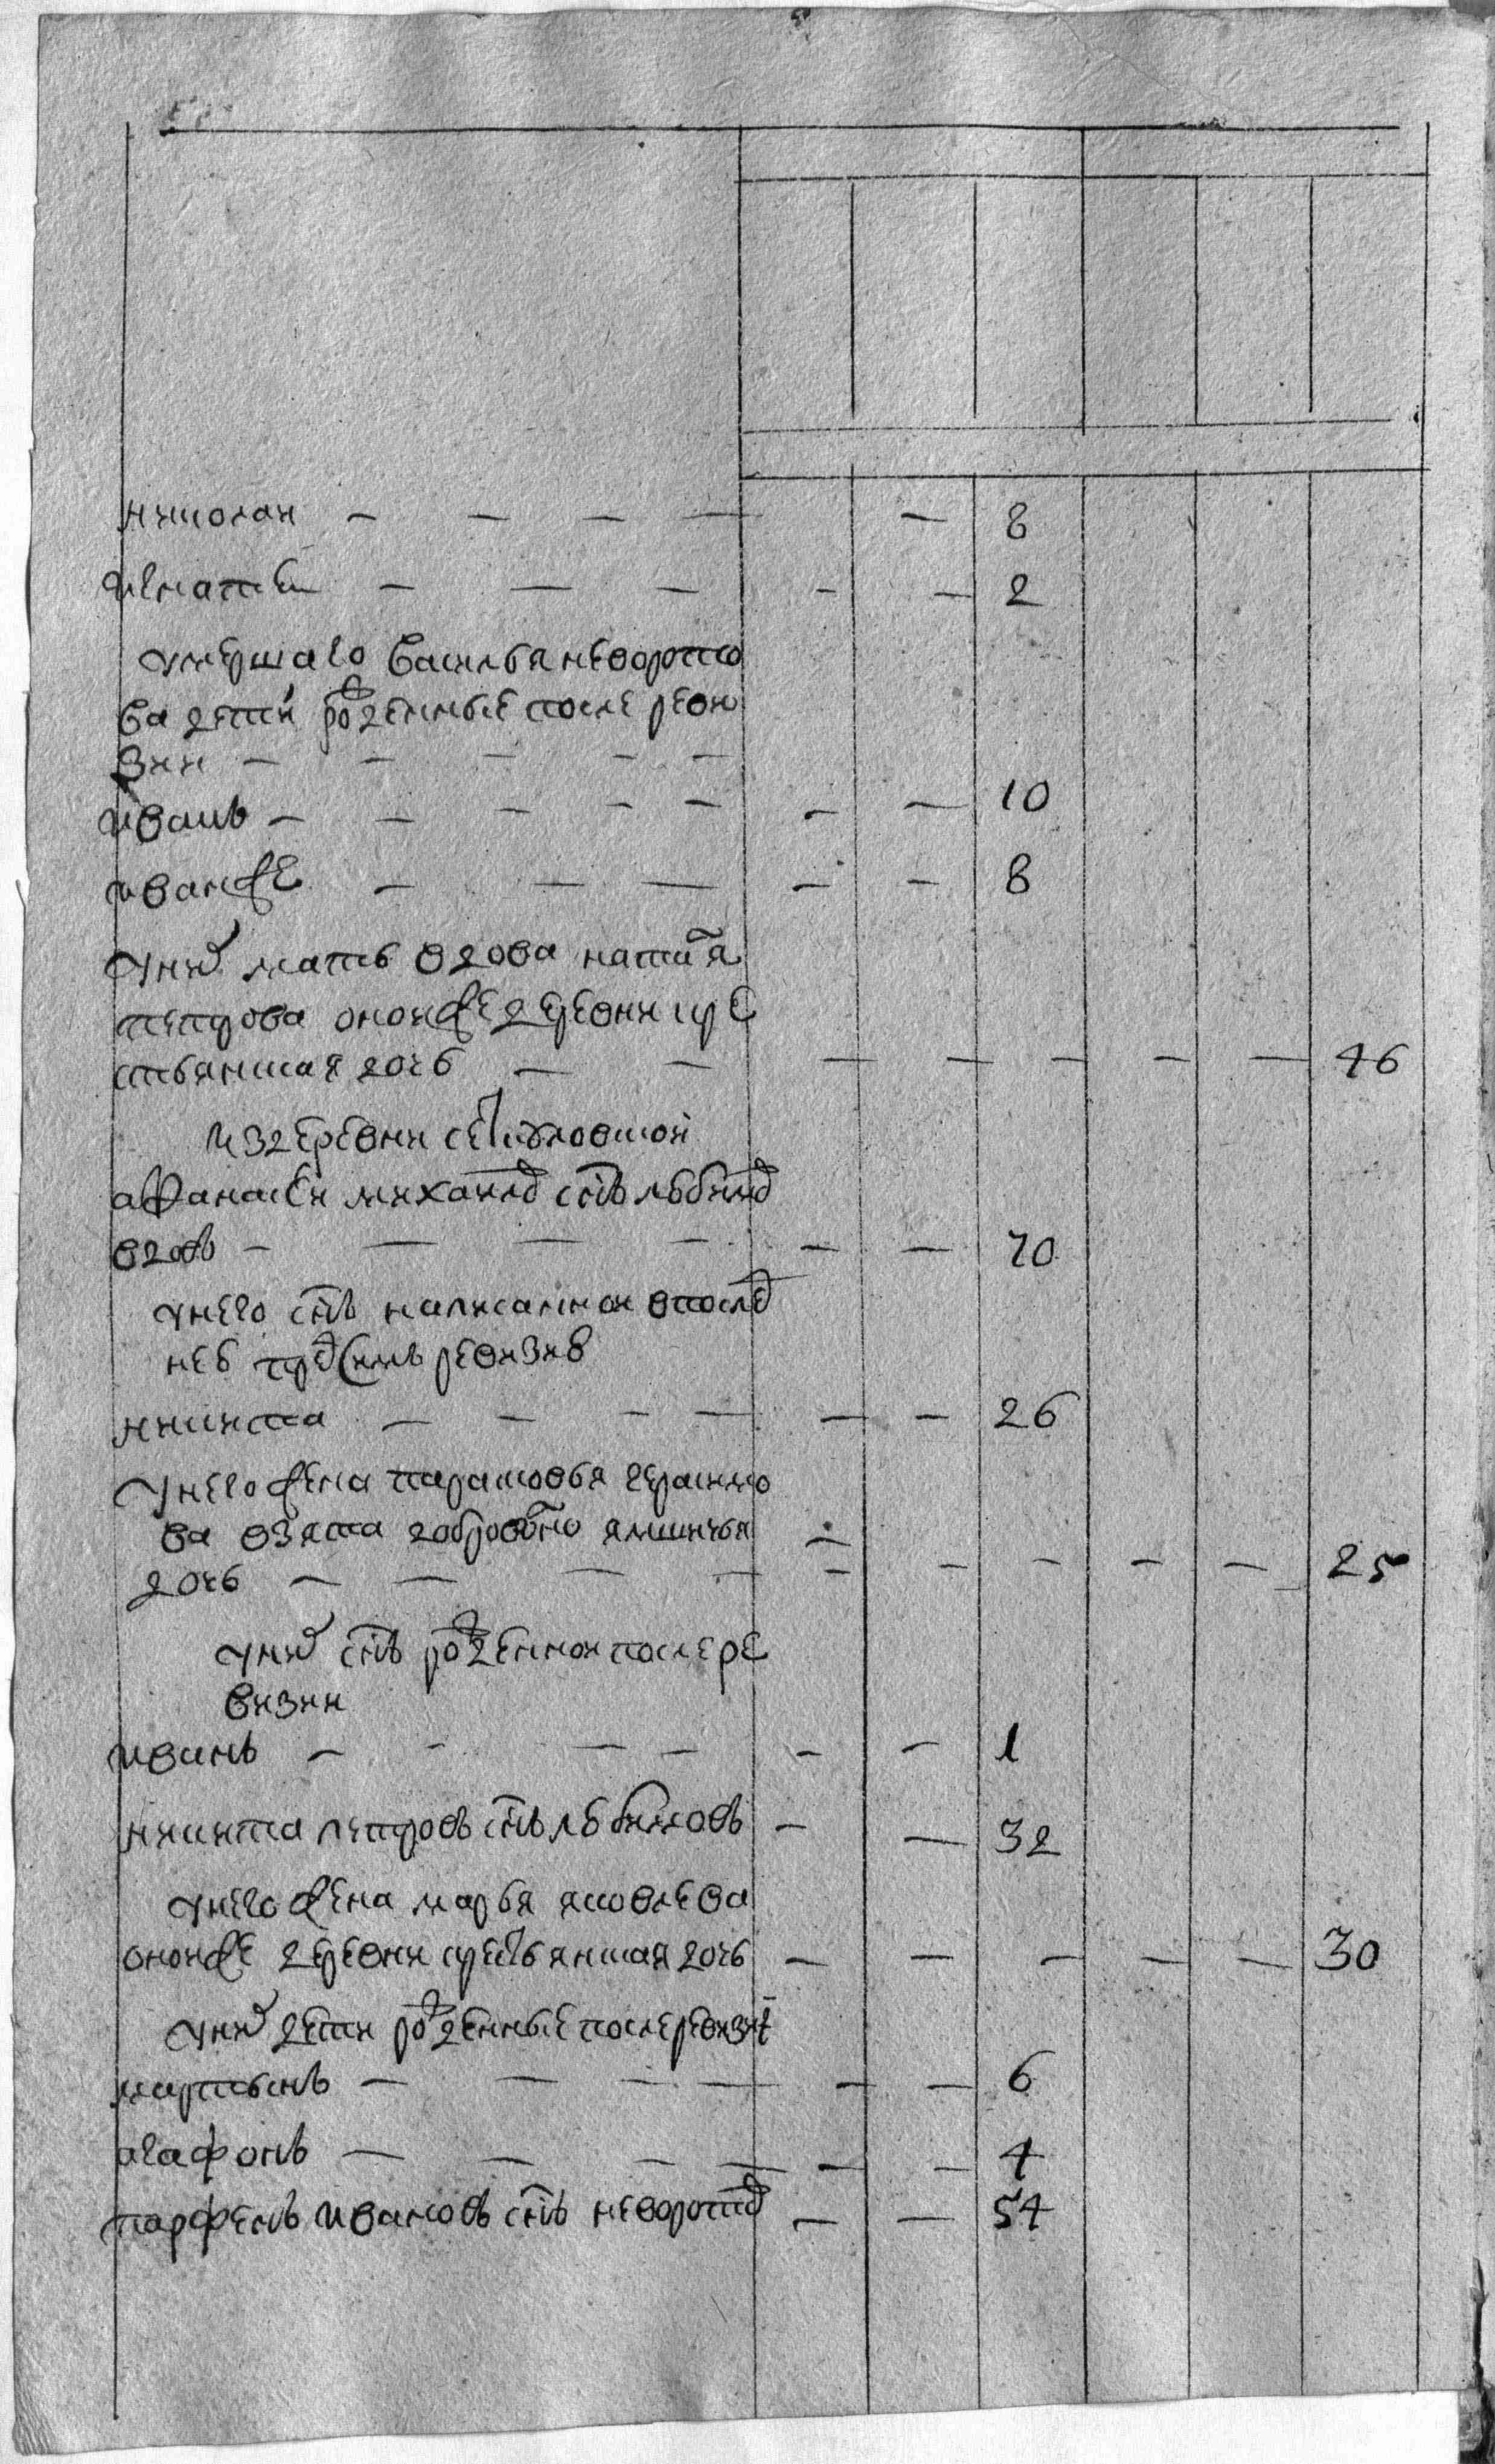 николаи — — — — — 8
игнатеи — — — — — 2
умершаго василья неворото
ва дети рожденные после реви
зии — — — — —
иванъ — — — — — — — 10
иван же — — — — — 8
у них мать вдова
петрова оной же деревни кре
стьянская дочь — — — — — — — 46
из деревни
афанасеи михаилов снъ
вдовъ — — — — — — 70
у него снъ написанной в послед
ней пред сим ревизии
никита — — — — — — 26
у него жена парасковья герасимо
ва взята ямщичья
дочь — — — — — — — — — 25
у них снъ рожденной после ре
визии
иванъ — — — — — — 1
никита петровъ снъ — — 32
у него жена марья яковлева
оной же деревни крестьянская дочь — — — — — 30
у них дети рожденные после ревизи
мартынъ — — — — — — 6
агафонъ — — — — — — 4
парфенъ ивановъ снъ неворотов — — 54